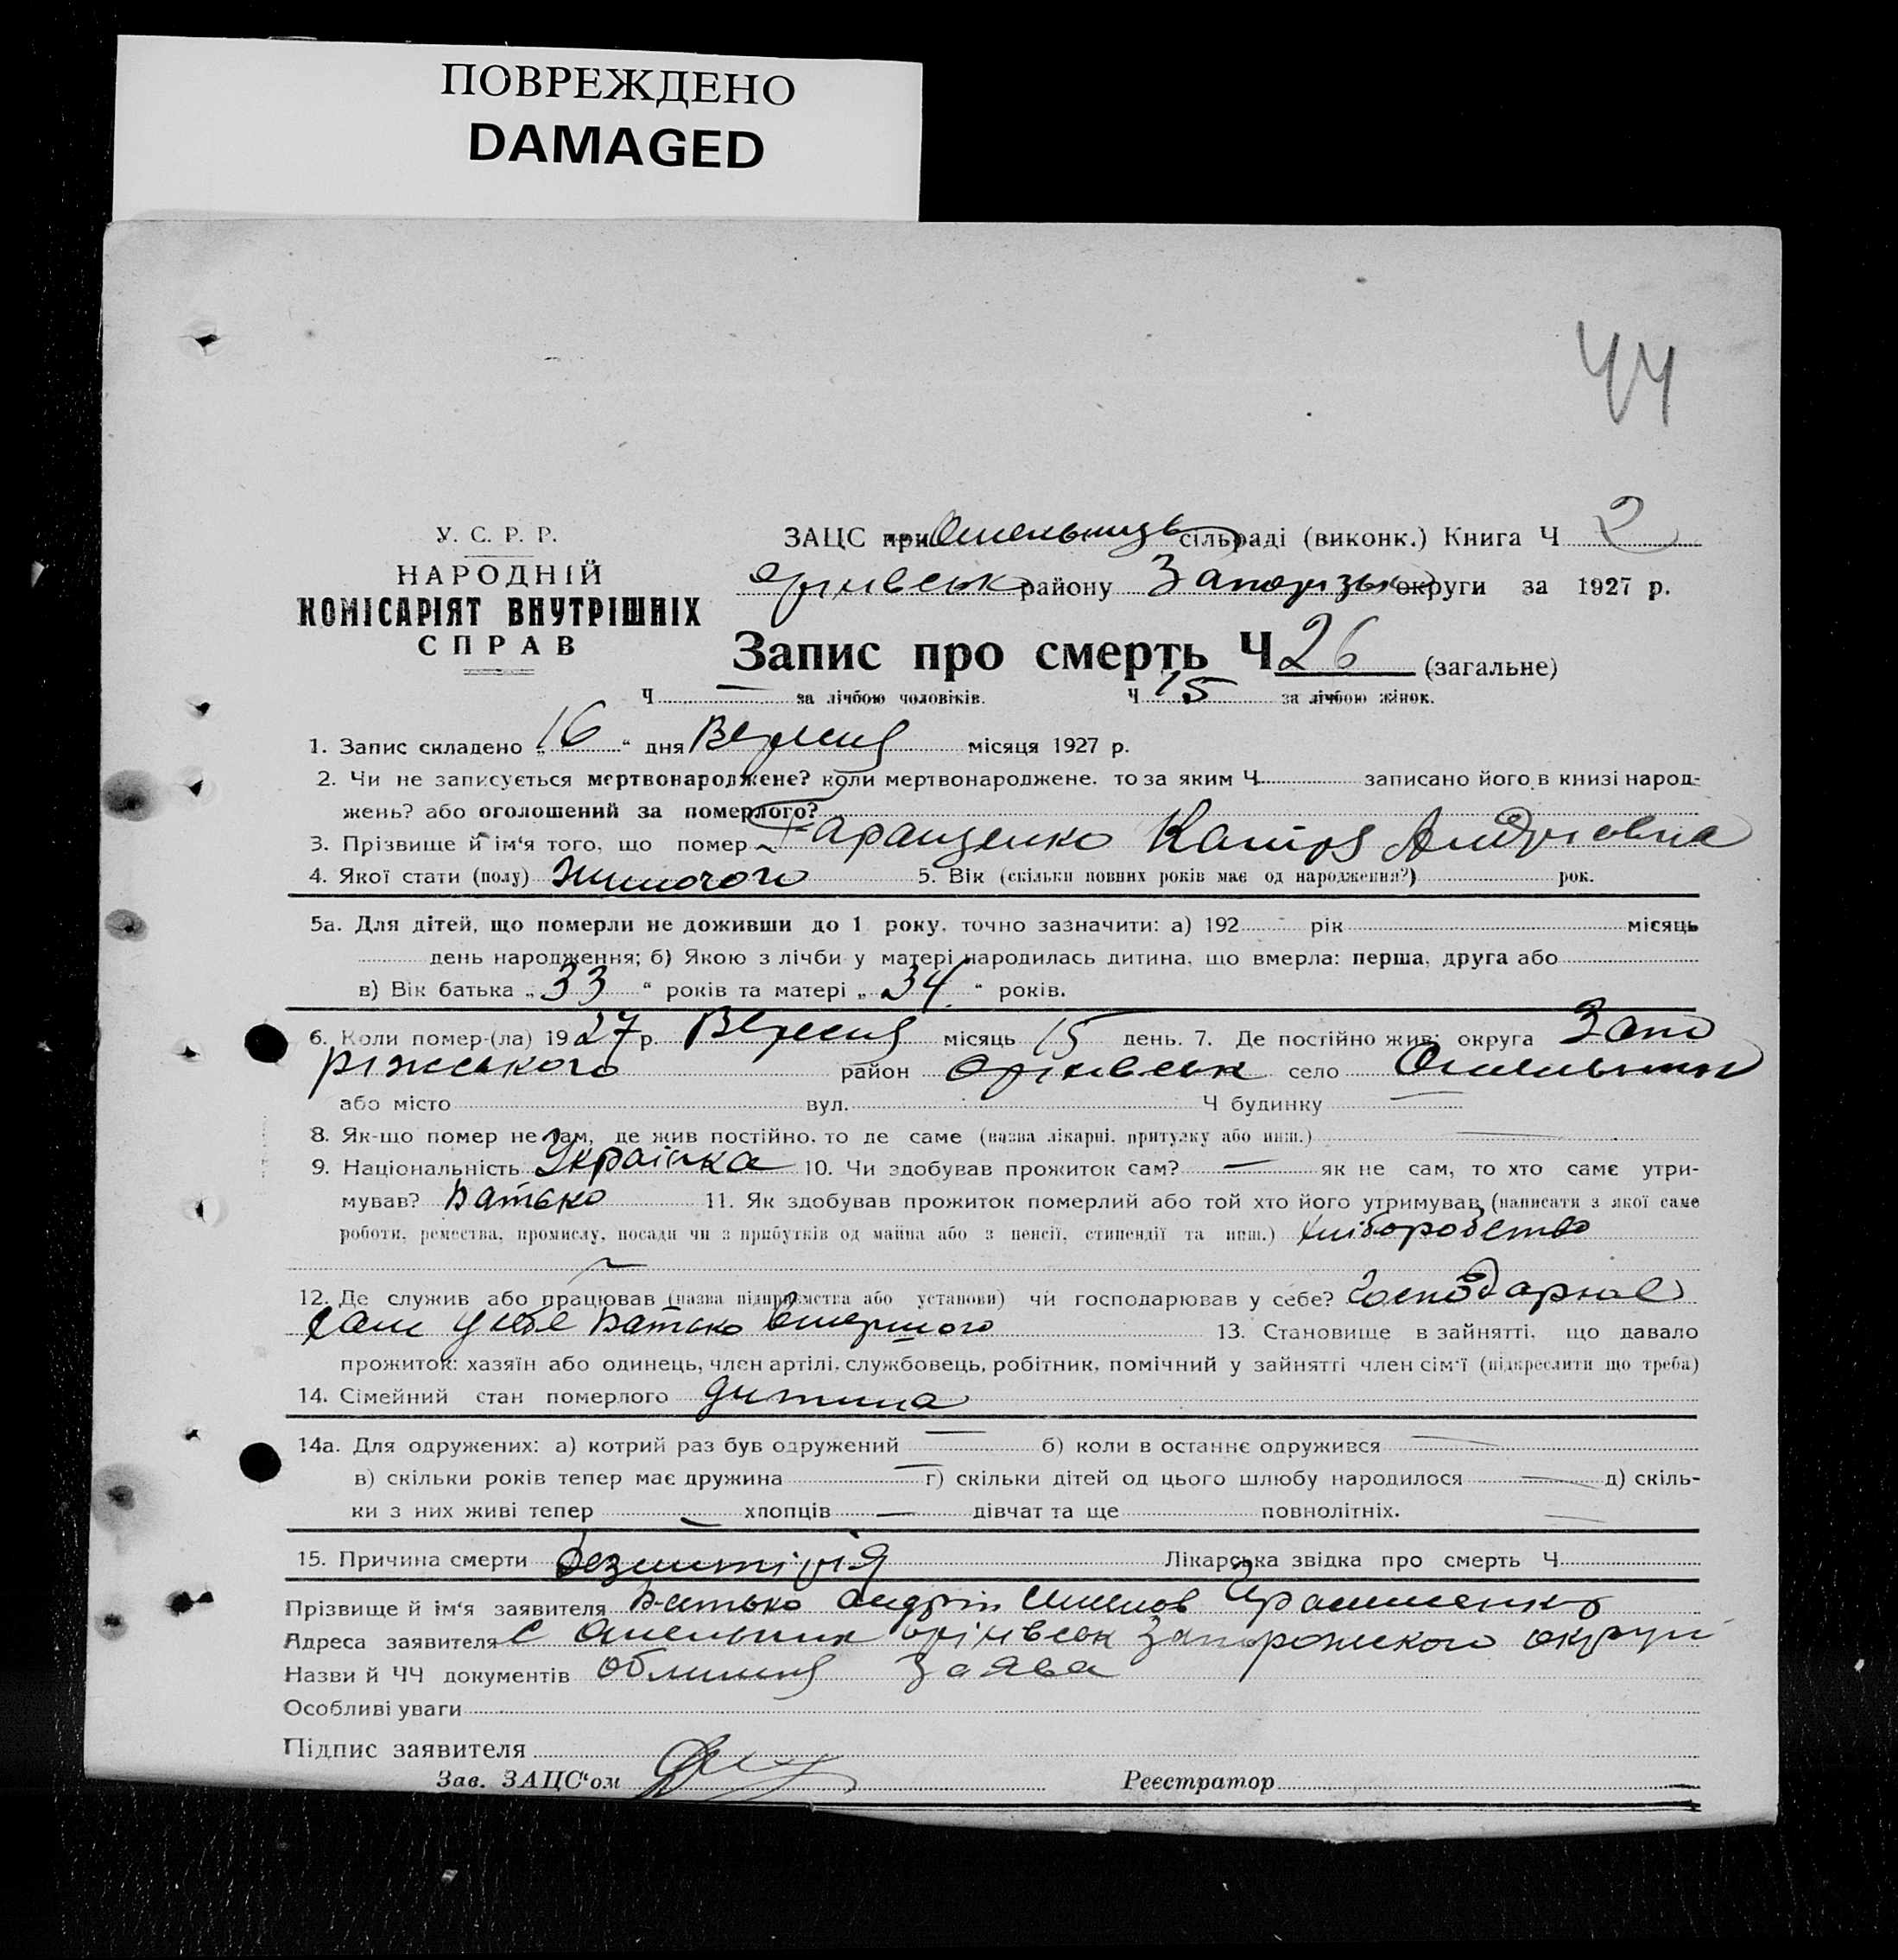 ПОВРЕЖДЕНО
DAMAGED
44
У. С. Р. Р.
НАРОДНІЙ
КОМІСАРІЯТ ВНУТРІШНІХ
СПРАВ
ЗАЦС при Омельницьк сільраді (виконк.) Книга Ч 2
Оріхівськ району Запорізьк округи за 1927 р.
Запис про смерть Ч 26 (загальне)
Ч — за лічбою чоловіків. Ч 15 за лічбою жінок.
1. Запис складено „16“ дня Вересня місяця 1927 р.
2. Чи не записується мертвонароджене? коли мертвонароджене, то за яким Ч записано його в книзі народ-
жень? або оголошений за померлого?
3. Прізвище й ім‘я того, що помер Таращенко Катря Андріевна
4. Якої стати (полу) Жиночого 5. Вік (скільки повних років має од народження?) рок.
5а. Для дітей, що померли не доживши до 1 року, точно зазначити: а) 192 - рік місяць
день народження; б) Якою з лічби у матері народилась дитина, що вмерла: перша, друга або
в) Вік батька „33“ років та матері „34“ років.
6. Коли помер-(ла) 1927 р. Вересня місяць 15 день. 7. Де постійно жив: округа Запо
ріжського район Оріхівськ село Омельник
або місто вул. Ч будинку —
8. Як-що помер не там, де жив постійно, то де саме (назва лікарні, притулку або инш.) —
9. Національність Українка 10. Чи здобував прожиток сам? — як не сам, то хто саме утри-
мував? Батько 11. Як здобував прожиток померлий або той хто його утримував (написати з якої саме
роботи, ремества, промислу, посади чи з прибутків од майна або з пенсії, стипендії та инш.) хліборобство
12. Де служив або працював (назва підприємства або установи) чи господарював у себе? Господарює
сам у себе батько вмершого 13. Становище в зайнятті, що давало
прожиток: хазяїн або одинець, член артілі, службовець, робітник, помічний у зайнятті член сім‘ї (підкреслити що треба)
14. Сімейний стан померлого дитина
14а. Для одружених: а) котрий раз був одружений — б) коли в останнє одружився —
в) скільки років тепер має дружина — г) скільки дітей од цього шлюбу народилося — д) скіль-
ки з них живі тепер — хлопців — дівчат та ще повнолітніх. —
15. Причина смерти Лікарська звідка про смерть Ч
Прізвище й ім‘я заявителя Батько Андрій
Адреса заявителя с Омельник Оріхівськ Запорожского округи
Назви й ЧЧ документів заява
Особливі уваги
Підпис заявителя
Зав. ЗАЦС‘ом Реєстратор